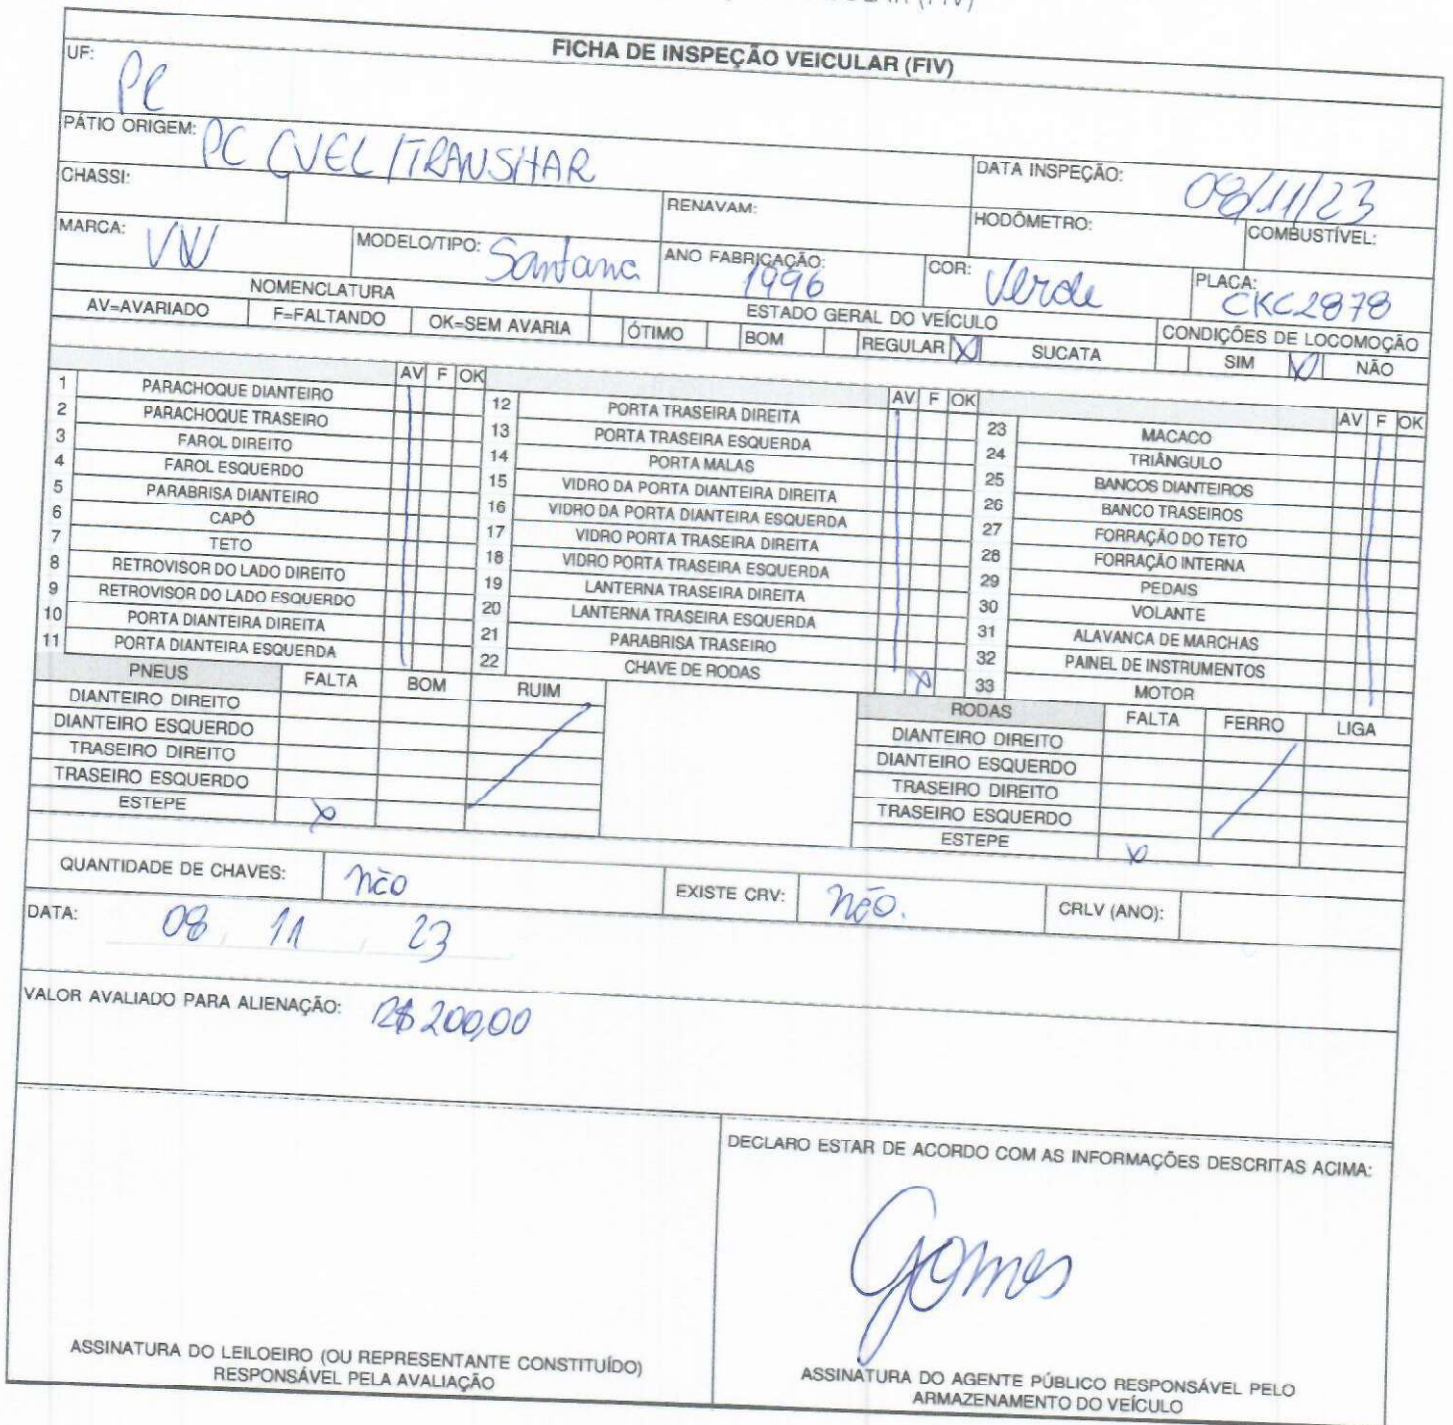 FICHA DE INSPEÇÃO VEICULAR (FIV)
UF: PR
PÁTIO ORIGEM: PC CVEL/TRANSHAR
DATA INSPEÇÃO: 08/11/23
CHASSI:
RENAVAM:
HODÔMETRO:
COMBUSTÍVEL:
MARCA: VW
MODELO/TIPO: Santana
ANO FABRICAÇÃO: 1996
COR: Verde
PLACA: CKC2878
NOMENCLATURA
ESTADO GERAL DO VEÍCULO
CONDIÇÕES DE LOCOMOÇÃO
AV=AVARIADO F=FALTANDO OK=SEM AVARIA ÓTIMO BOM REGULAR X SUCATA SIM X NÃO
AV F OK AV F OK AV F OK
1 PARACHOQUE DIANTEIRO
2 PARACHOQUE TRASEIRO
3 FAROL DIREITO
4 FAROL ESQUERDO
5 PARABRISA DIANTEIRO
6 CAPÔ
7 TETO
8 RETROVISOR DO LADO DIREITO
9 RETROVISOR DO LADO ESQUERDO
10 PORTA DIANTEIRA DIREITA
11 PORTA DIANTEIRA ESQUERDA
12 PORTA TRASEIRA DIREITA
13 PORTA TRASEIRA ESQUERDA
14 PORTA MALAS
15 VIDRO DA PORTA DIANTEIRA DIREITA
16 VIDRO DA PORTA DIANTEIRA ESQUERDA
17 VIDRO PORTA TRASEIRA DIREITA
18 VIDRO PORTA TRASEIRA ESQUERDA
19 LANTERNA TRASEIRA DIREITA
20 LANTERNA TRASEIRA ESQUERDA
21 PARABRISA TRASEIRO
22 CHAVE DE RODAS X
23 MACACO
24 TRIÂNGULO
25 BANCOS DIANTEIROS
26 BANCO TRASEIROS
27 FORRAÇÃO DO TETO
28 FORRAÇÃO INTERNA
29 PEDAIS
30 VOLANTE
31 ALAVANCA DE MARCHAS
32 PAINEL DE INSTRUMENTOS
33 MOTOR
PNEUS FALTA BOM RUIM
DIANTEIRO DIREITO
DIANTEIRO ESQUERDO
TRASEIRO DIREITO
TRASEIRO ESQUERDO
ESTEPE X
RODAS FALTA FERRO LIGA
DIANTEIRO DIREITO
DIANTEIRO ESQUERDO
TRASEIRO DIREITO
TRASEIRO ESQUERDO
ESTEPE X
QUANTIDADE DE CHAVES: não
EXISTE CRV: não.
CRLV (ANO):
DATA: 08 11 23
VALOR AVALIADO PARA ALIENAÇÃO: R$ 200,00
DECLARO ESTAR DE ACORDO COM AS INFORMAÇÕES DESCRITAS ACIMA:
Gomes
ASSINATURA DO LEILOEIRO (OU REPRESENTANTE CONSTITUÍDO)
RESPONSÁVEL PELA AVALIAÇÃO
ASSINATURA DO AGENTE PÚBLICO RESPONSÁVEL PELO
ARMAZENAMENTO DO VEÍCULO